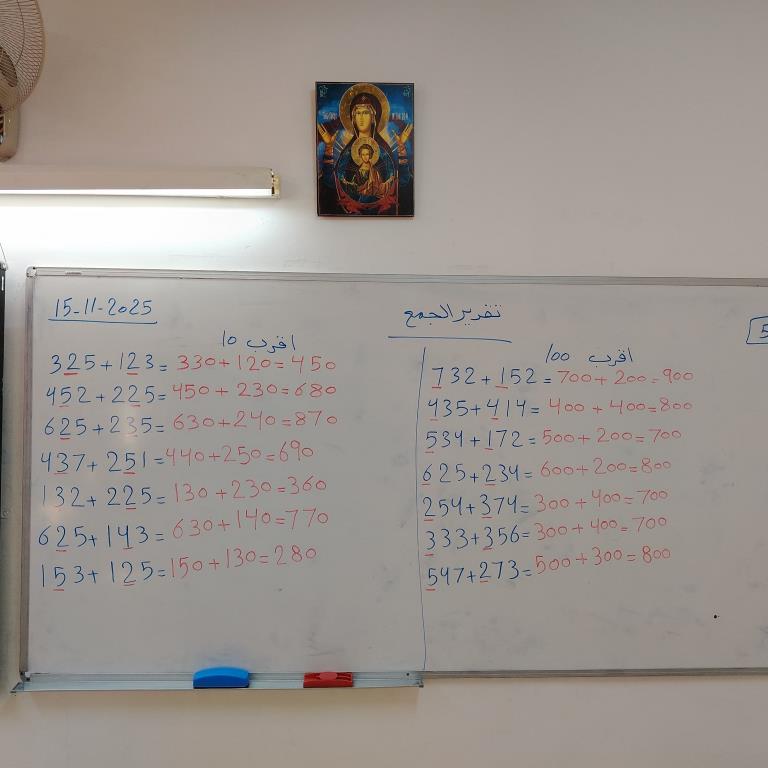 15-11-2025
تقرير الجمع
5
اقرب 10
325+123=330+120=450
452+225=450+230=680
625+235=630+240=870
437+251=440+250=690
132+225=130+230=360
625+143=630+140=770
153+125=150+130=280
اقرب 100
732+152=700+200=900
435+414=400+400=800
534+172=500+200=700
625+234=600+200=800
254+374=300+400=700
333+356=300+400=700
547+273=500+300=800